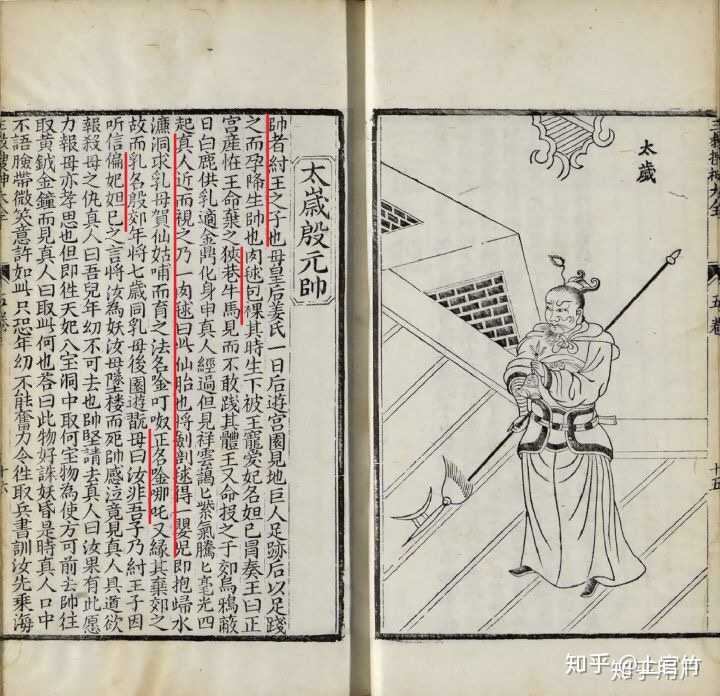 太歲
五卷
十五
太歲殷元帥
帥者紂王之子也母皇后姜氏一日后遊宮園見地巨人足跡后以足踐
之而孕降生帥也肉毬包裸其時生下被王寵愛妃名妲已冐奏王曰正
宮產恠王命棄之狹巷牛馬見而不敢踐其體王又命投之于郊烏鴉蔽
日白鹿供乳適金鼎化身申真人經過但見祥雲靄匕紫氣騰匕毫光四
起真人近而視之乃一肉毬曰此仙胎也將劍剖毬得一嬰兒即抱歸水
濂洞求乳母賀仙姑哺而育之法名唫叮呶正名唫哪吒又緣其棄郊之
故而乳名殷郊年將七歲同乳母後園遊翫母曰汝非吾子乃紂王子因
听信偏妃妲已之言將汝為妖汝母墜楼而死帥感泣竟見真人具道欲
報殺母之仇真人曰吾兒年幼不可去也帥堅請去真人曰汝果有此愿
力報母亦孝思也但即徃天妃八宝洞中取何宝物為使方可前去帥往
取黃鉞金鐘而見真人曰取此何也荅曰此物好誅妖昏是時真人口中
不語臉帶微笑意許如此只恐年幼不能奮力令徃取兵書訓汝先乘海
十六
知乎 @上官竹